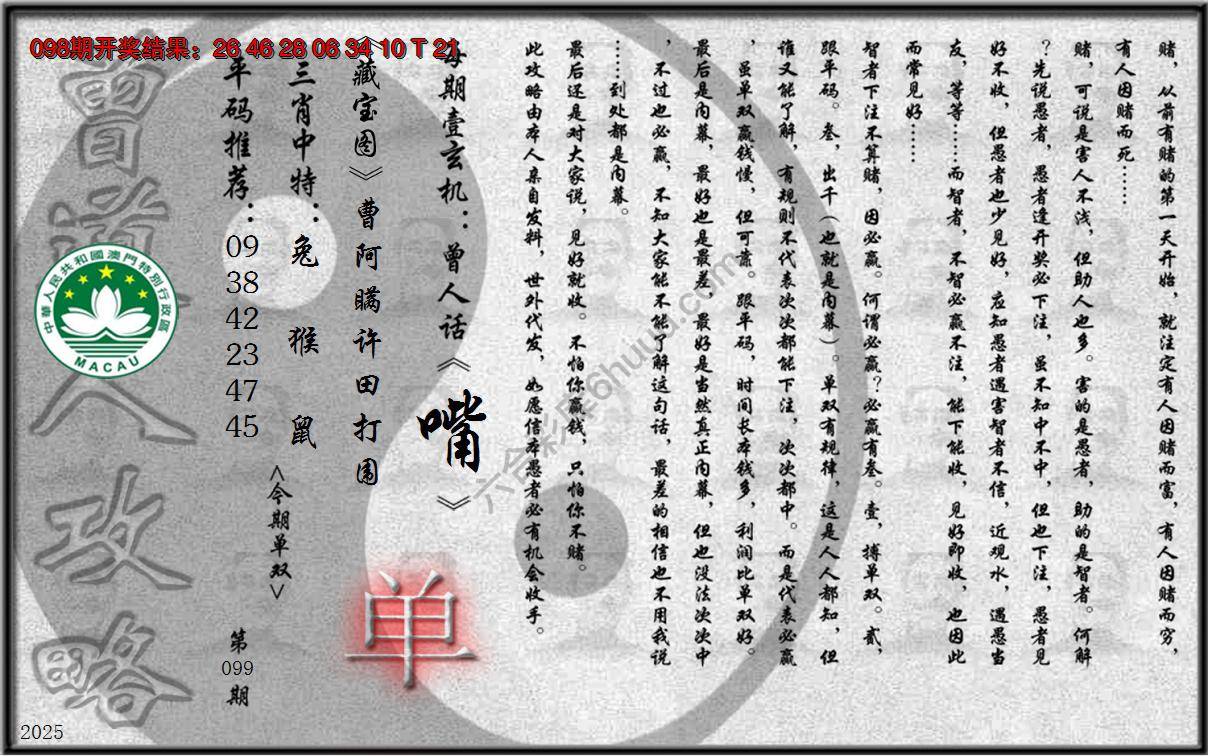 098期开奖结果：26 46 28 06 34 10 T 21
赌，从前有赌的第一天开始，就注定有人因赌而富，有人因赌而穷，
有人因赌而死……
赌，可说是害人不浅，但助人也多。害的是愚者，助的是智者。何解
？先说愚者，愚者逢开奖必下注，虽不知中不中，但也下注，愚者见
好不收，但愚者也少见好，应知愚者遇害智者不信，近观水，遇愚当
友，等等……而智者，不智必赢不注，能下能收，见好即收，也因此
而常见好……
智者下注不算赌，因必赢。何谓必赢？必赢有叁。壹，搏单双。贰，
跟平码。叁，出千（也就是内幕）。单双有规律，这是人人都知，但
谁又能了解，有规则不代表次次都能下注，次次都中。而是代表必赢
，虽单双赢钱慢，但可靠。跟平码，时间长本钱多，利润比单双好。
最后是内幕，最好也是最差，最好是当然真正内幕，但也没法次次中
，不过也必赢，不知大家能不能了解这句话，最差的相信也不用我说
……到处都是内幕。
最后还是对大家说，见好就收。不怕你赢钱，只怕你不赌。
此攻略由本人亲自发料，世外代发，如愿信本愚者必有机会收手。
每期壹玄机：曾人话《嘴》
《藏宝图》曹阿瞒许田打围
三肖中特：兔 猴 鼠
平码推荐：09 38 42 23 47 45
<今期单双>
单
第099期
曾道人攻略
中華人民共和國澳門特別行政區
MACAU
六合彩库6huuu.com
2025